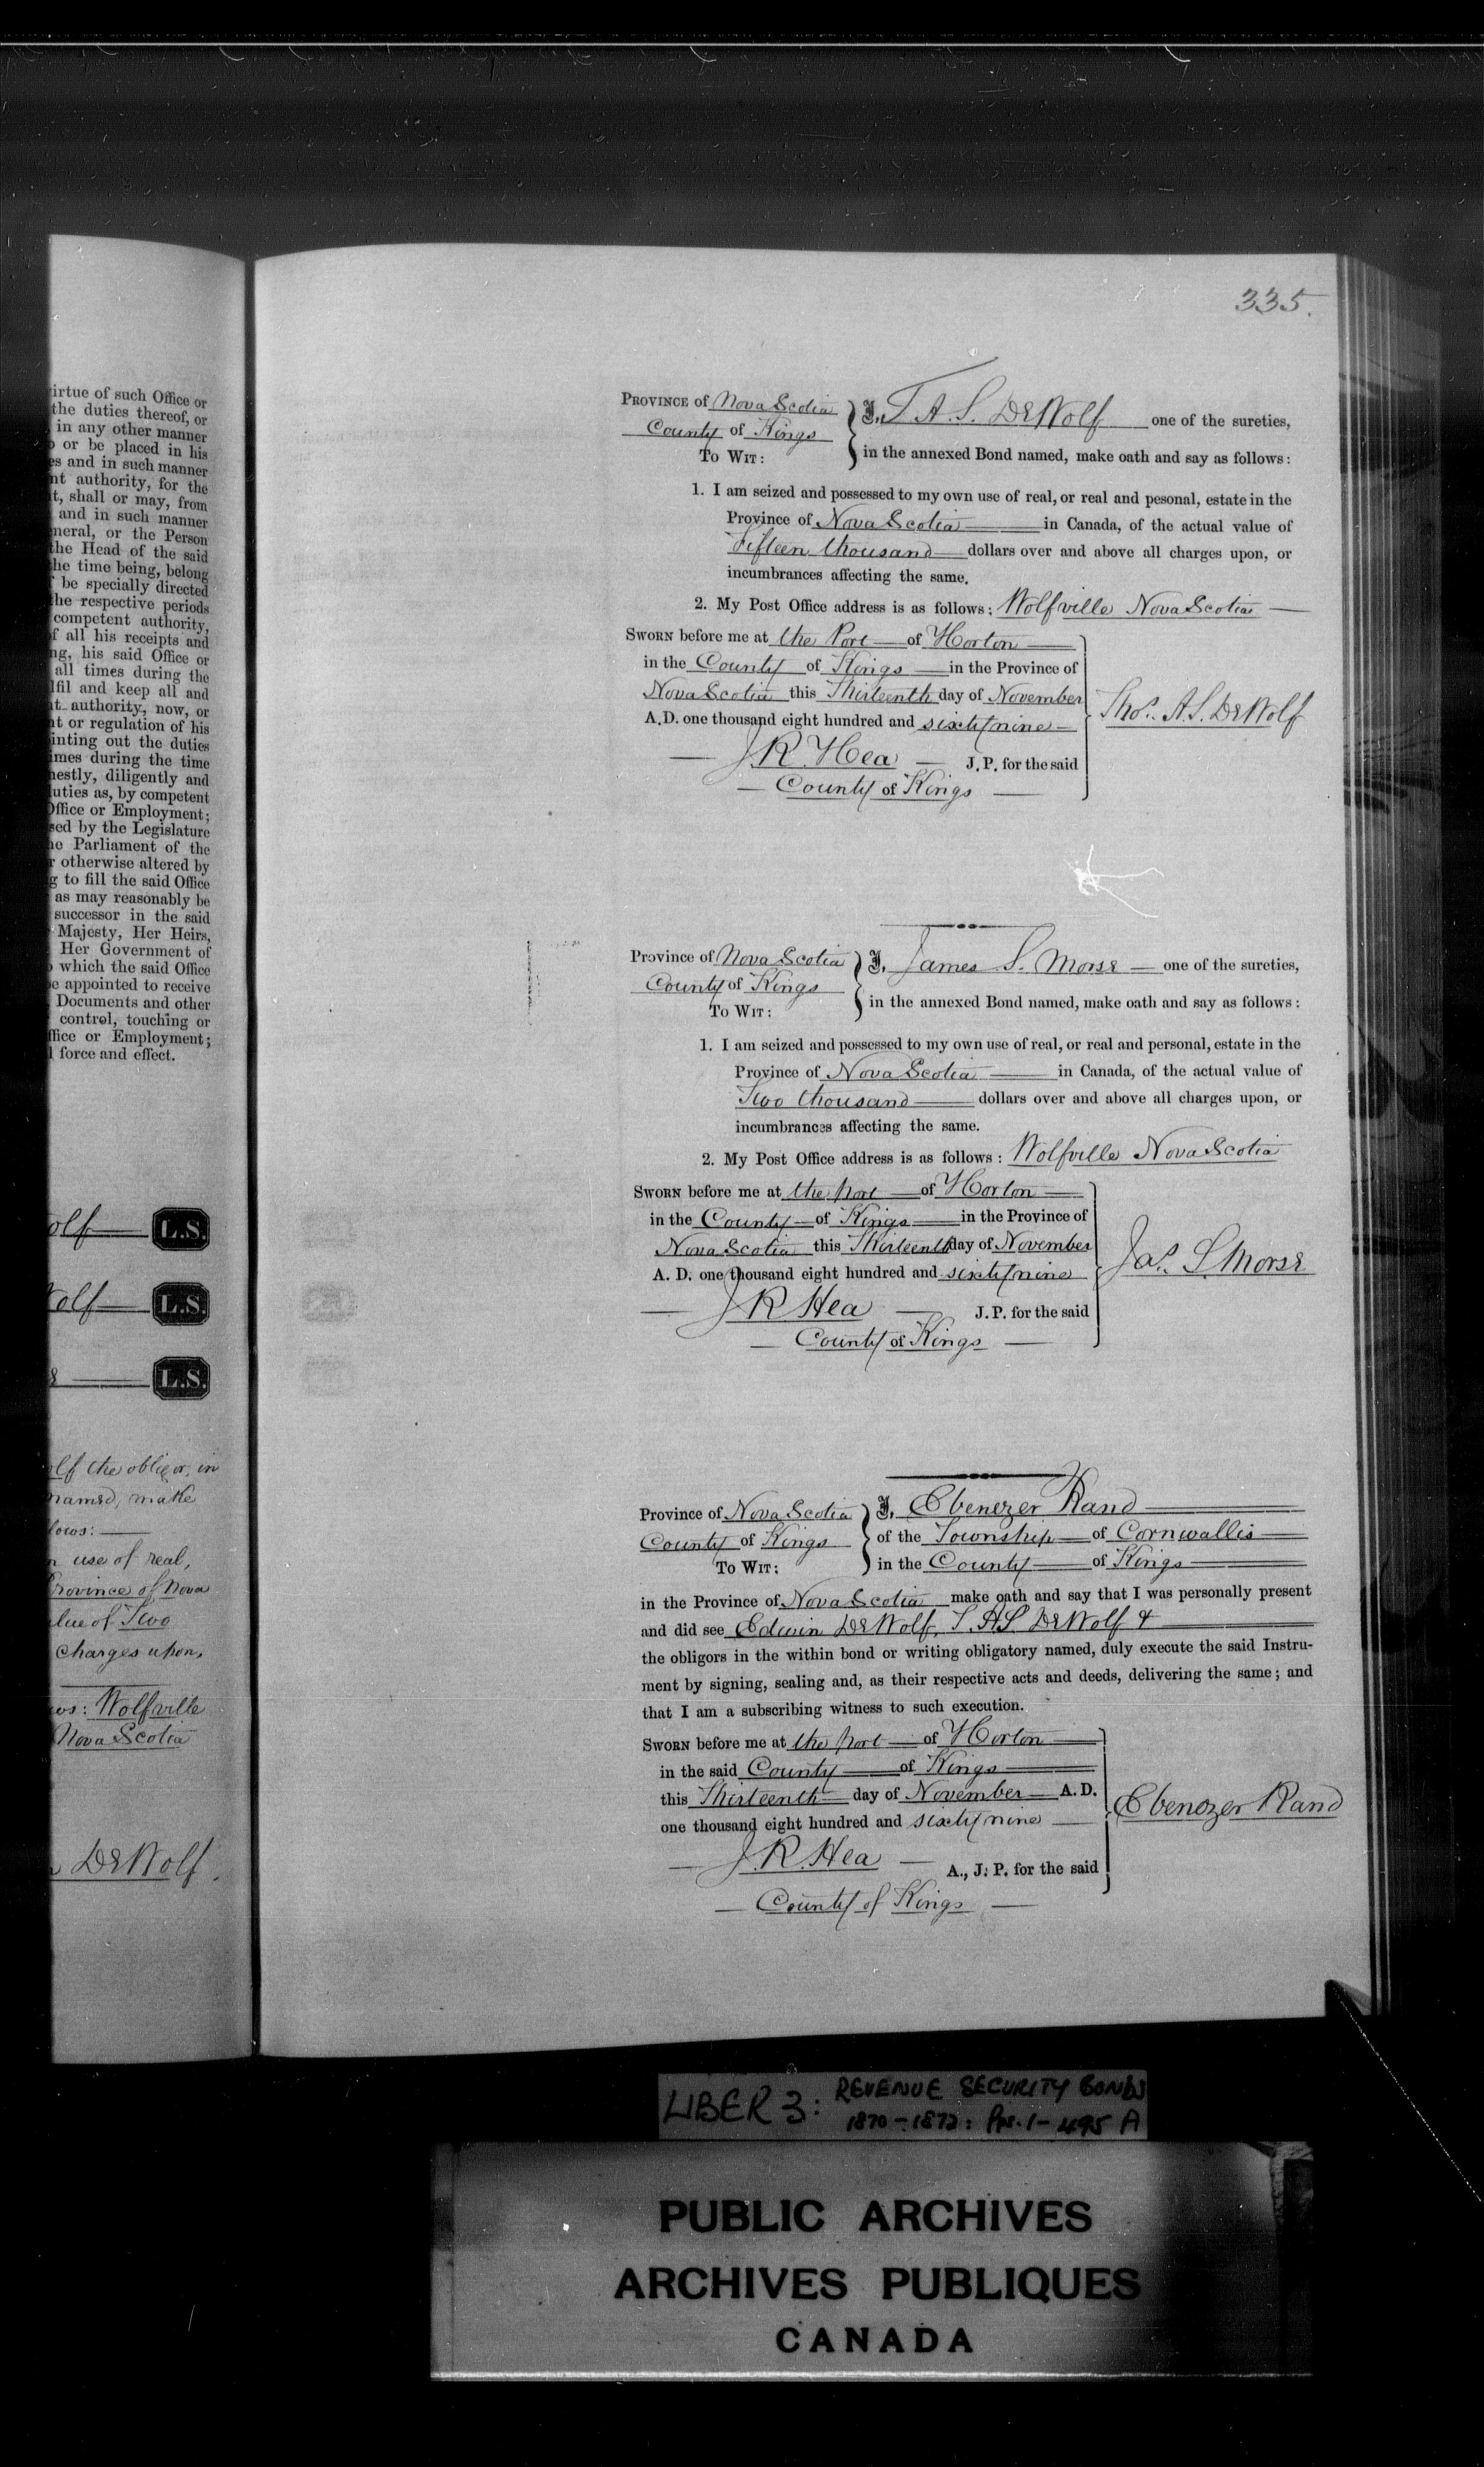 irtue of such Office or
the duties thereof, or
in any other manner
or be placed in his
es and in such manner
nt authority, for the
t, shall or may, from
and in such manner
neral, or the Person
the Head of the said
he time being, belong
be specially directed
the respective periods
competent authority,
f all his receipts and
ng, his said Office or
all times during the
lfil and keep all and
t authority, now, or
nt or regulation of his
inting out the duties
imes during the time
nestly, diligently and
uties as, by competent
Office or Employment;
sed by the Legislature
e Parliament of the
r otherwise altered by
g to fill the said Office
as may reasonably be
successor in the said
Majesty, Her Heirs,
Her Government of
which the said Office
e appointed to receive
Documents and other
control, touching or
ffice or Employment;
l force and effect.
olf L.S.
olf L.S.
L.S.
lf the obligor, in
named, make
lows:
n use of real,
Province of Nova
alue of Two
Charges upon,
ws: Wolfville
Nova Scotia
DeWolf.
335.
PROVINCE of Nova Scotia
County of Kings
TO WIT:
I, T. A. S. DeWolf one of the sureties,
in the annexed Bond named, make oath and say as follows:
1. I am seized and possessed to my own use of real, or real and pesonal, estate in the
Province of Nova Scotia in Canada, of the actual value of
Fifteen thousand dollars over and above all charges upon, or
incumbrances affecting the same.
2. My Post Office address is as follows: Wolfville Nova Scotia
SWORN before me at the Port of Horton
in the County of Kings in the Province of
Nova Scotia this Thirteenth day of November
A.D. one thousand eight hundred and sixty nine
J. R. Hea J.P. for the said
County of Kings
Thos. A. S. DeWolf
Province of Nova Scotia
County of Kings
TO WIT:
I, James S. Morse one of the sureties,
in the annexed Bond named, make oath and say as follows:
1. I am seized and possessed to my own use of real, or real and personal, estate in the
Province of Nova Scotia in Canada, of the actual value of
Two thousand dollars over and above all charges upon, or
incumbrances affecting the same.
2. My Post Office address is as follows: Wolfville Nova Scotia
SWORN before me at the port of Horton
in the County of Kings in the Province of
Nova Scotia this Thirteenth day of November
A. D. one thousand eight hundred and sixty nine
J R Hea J.P. for the said
County of Kings
Jas. S. Morse
Province of Nova Scotia
County of Kings
TO WIT:
I, Ebenezer Rand
of the Township of Cornwallis
in the County of Kings
in the Province of Nova Scotia make oath and say that I was personally present
and did see Edwin DeWolf, T. A S. DeWolf &
the obligors in the within bond or writing obligatory named, duly execute the said Instru-
ment by signing, sealing and, as their respective acts and deeds, delivering the same; and
that I am a subscribing witness to such execution.
SWORN before me at the port of Horton
in the said County of Kings
this Thirteenth day of November A.D.
one thousand eight hundred and sixty nine
J. R. Hea A., J. P. for the said
County of Kings
Ebenezer Rand
LIBER 3: REVENUE SECURITY BONDS
1870-1872: Pps. 1-495 A
PUBLIC ARCHIVES
ARCHIVES PUBLIQUES
CANADA